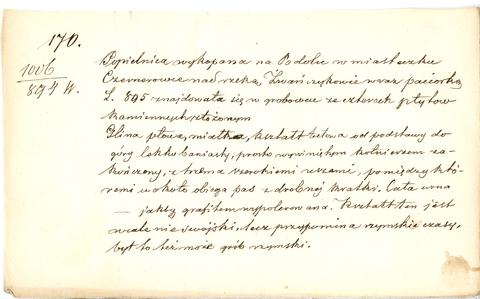 170.
1006
894 W.
Popielnica wykopana na Podolu w miasteczku
Czernerowce nad rzeką Żwań czykowie wraz paciorką
L. 895 znajdowała się w grobowcu ze czterech płytów
kamiennych złożonym
Glina płowa, miałka, kształt belowa od podstawy do
góry lekko baniasty, prosto wywiniętym kołnierzem za-
kończony, z trzema szerokiemi wrzemi, pomiędzy któ-
remi wokoło obiega pas z drobnej kratki. Cała urna
— jakby grafitem wypolerowana. Kształt ten jest
wcale nie swojski, lecz przypomina rzymskie czasy,
był to też może grób rzymski.